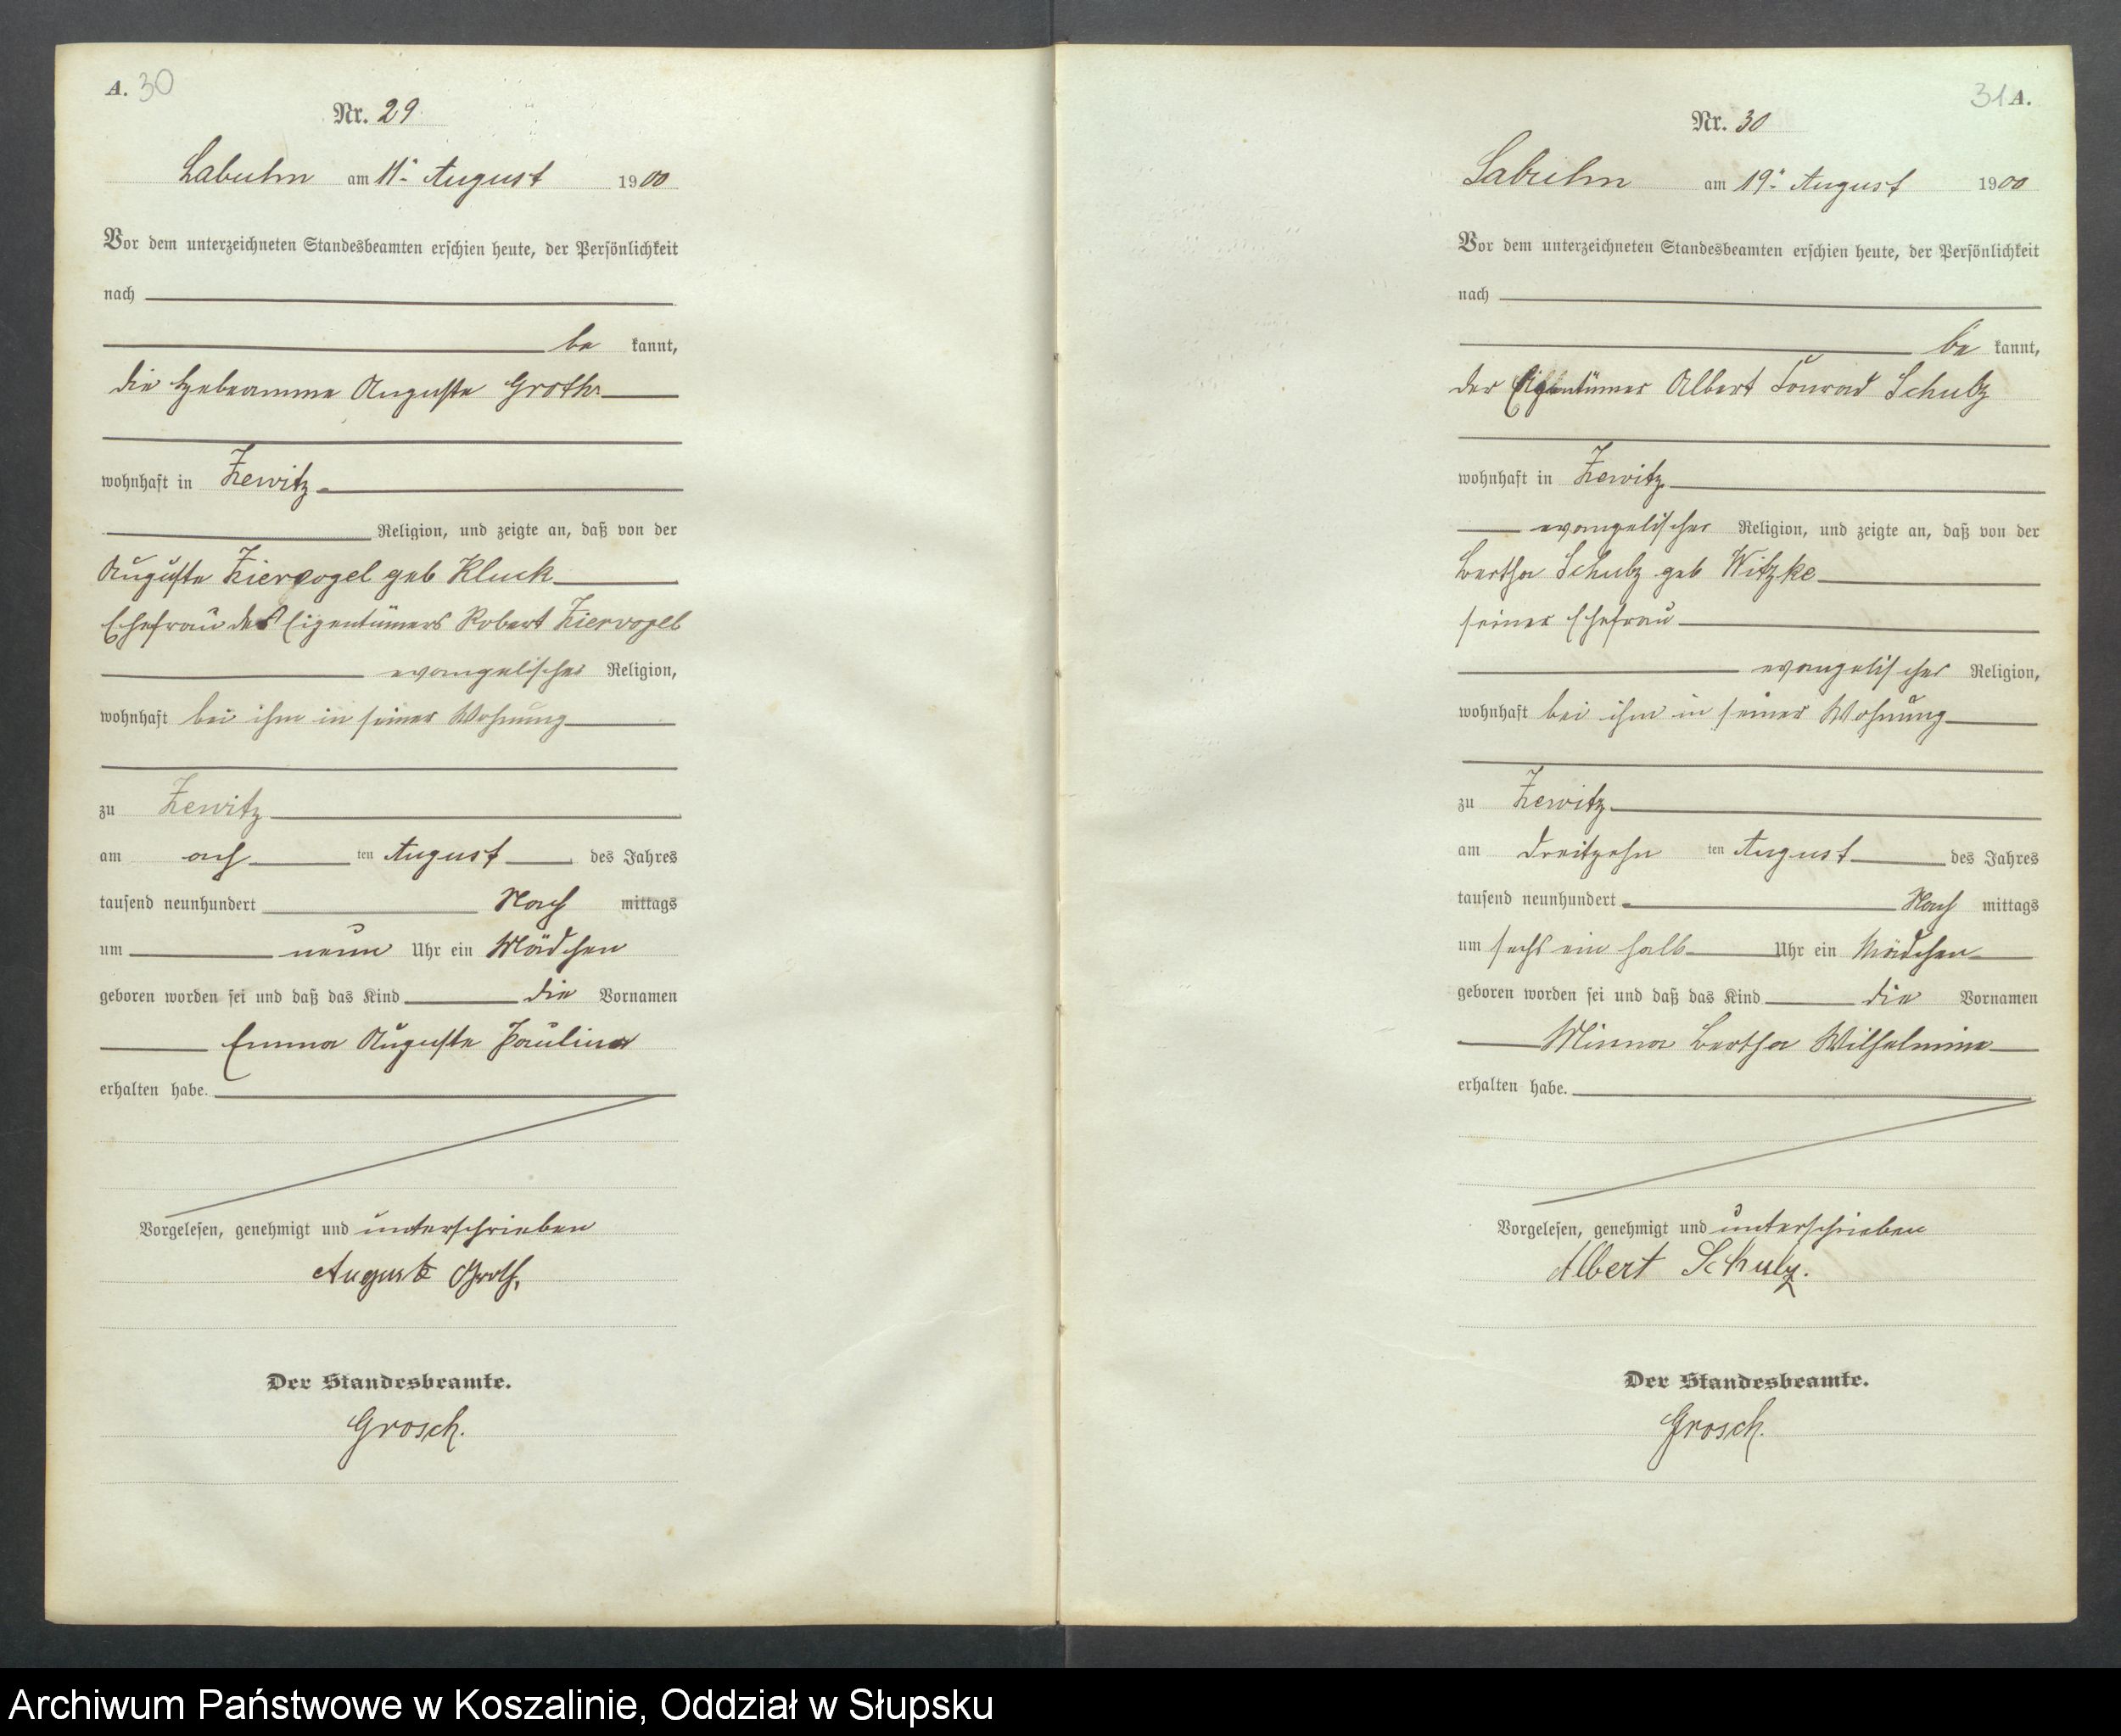 A. 30
Nr. 29
Labuhn am 11. August 1900
Vor dem unterzeichneten Standesbeamten erschien heute, der Persönlichkeit
nach
be kannt,
die Hebeamme Auguste Groth
wohnhaft in Zewitz
Religion, und zeigte an, daß von der
Auguste Ziervogel geb Kluck
Ehefrau des Eigentümers Robert Ziervogel
evangelischer Religion,
wohnhaft bei ihm in seiner Wohnung
zu Zewitz
am ach ten August des Jahres
tausend neunhundert Nach mittags
um neun Uhr ein Mädchen
geboren worden sei und daß das Kind die Vornamen
Emma Auguste Pauline
erhalten habe.
Vorgelesen, genehmigt und unterschrieben
Auguste Groth,
Der Standesbeamte.
Grosch.
31 A.
Nr. 30
Labuhn am 19. August 1900
Vor dem unterzeichneten Standesbeamten erschien heute, der Persönlichkeit
nach
be kannt,
der Eigentümer Albert Conrad Schulz
wohnhaft in Zewitz
evangelischer Religion, und zeigte an, daß von der
Bertha Schulz geb Witzke
seiner Ehefrau
evangelischer Religion,
wohnhaft bei ihm in seiner Wohnung
zu Zewitz
am dreitzehn ten August des Jahres
tausend neunhundert Nach mittags
um sechs ein halb Uhr ein Mädchen
geboren worden sei und daß das Kind die Vornamen
Minna Bertha Wilhelmine
erhalten habe.
Vorgelesen, genehmigt und unterschrieben
Albert Schulz.
Der Standesbeamte.
Grosch.
Archiwum Państwowe w Koszalinie, Oddział w Słupsku